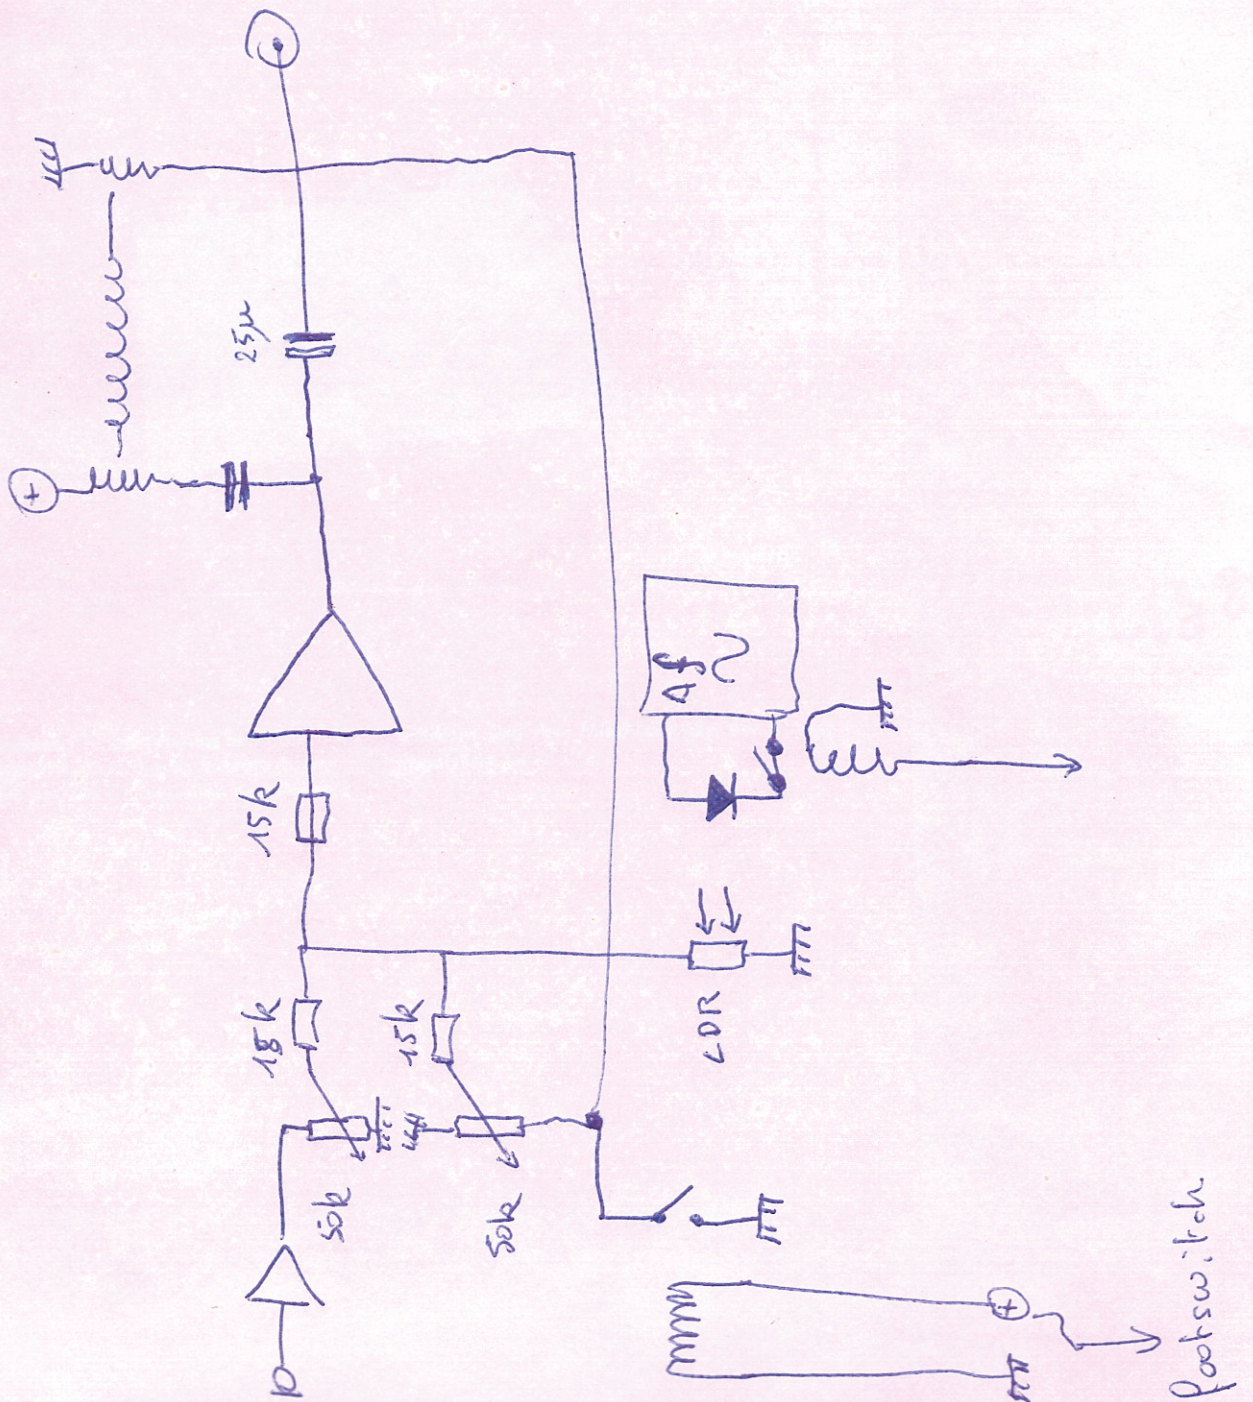 +
25µ
15k
18k
50k
15k
50k
LDR
Af
+
footswitch